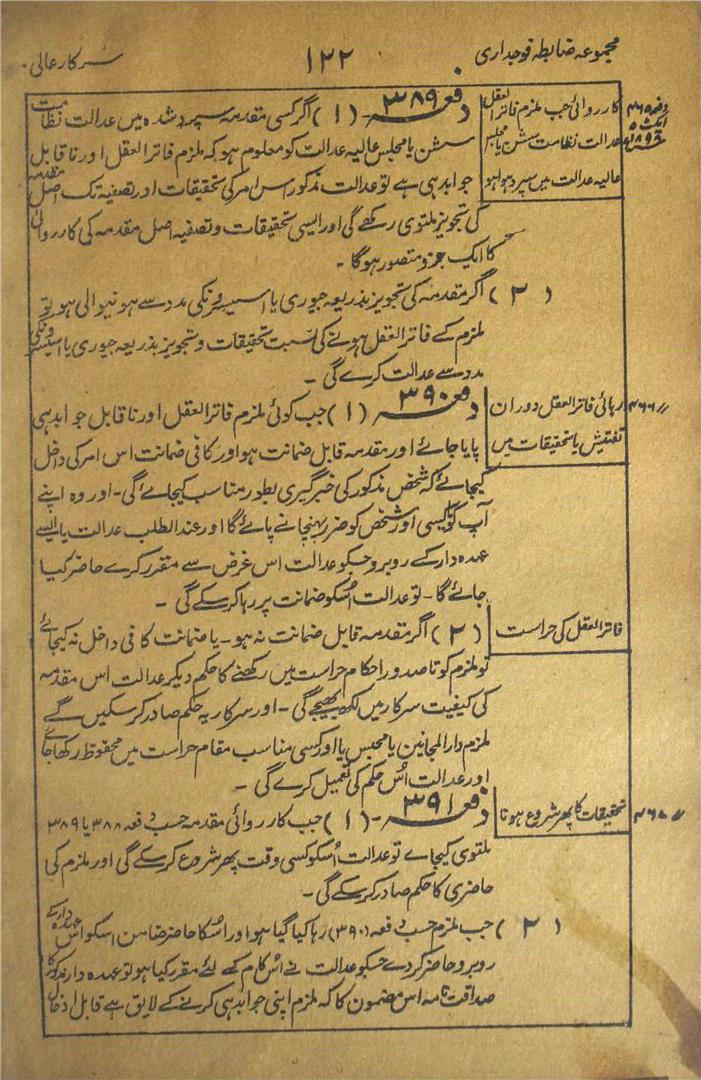 مجموعہ ضابطہ فوجداری
۱۲۲
سرکار عالی۔
دفعہ ۴۶۵
ایکٹ ۵
۱۸۹۸ء
کارروائی جب ملزم فاتر العقل
عدالت نظامت سشن یا مجلس
عالیہ عدالت میں سپرد ہوا ہو
دفعہ ۳۸۹۔ (۱) اگر کسی مقدمہ سپرد شدہ میں عدالت نظامت
سشن یا مجلس عالیہ عدالت کو معلوم ہو کہ ملزم فاتر العقل اور ناقابل
جوابدہی ہے تو عدالت مذکور اس امر کی تحقیقات اور تصفیہ تک اصل مقدمہ
کی تجویز ملتوی رکھے گی اور ایسی تحقیقات و تصفیہ اصل مقدمہ کی کارروائی
کا ایک جزو متصور ہوگا۔
(۲) اگر مقدمہ کی تجویز بذریعہ جیوری یا اسیسرونکی مدد سے ہونیوالی ہو تو
ملزم کے فاتر العقل ہونے کی نسبت تحقیقات و تجویز بذریعہ جیوری یا اسیسرونکی
مدد سے عدالت کرے گی۔
〃 ۴۶۶
رہائی فاتر العقل دوران
تفتیش یا تحقیقات میں
دفعہ ۳۹۰ (۱) جب کوئی ملزم فاتر العقل اور ناقابل جوابدہی
پایا جائے اور مقدمہ قابل ضمانت ہو اور کافی ضمانت اس امر کی داخل
کیجائے کہ شخص مذکور کی خبرگیری بطور مناسب کیجائے گی۔ اور وہ اپنے
آپ کو یا کسی اور شخص کو ضرر پہنچانے نہ پائے گا اور عندالطلب عدالت یا ایسے
عہدہ دار کے روبرو جسکو عدالت اس غرض سے مقرر کرے حاضر کیا
جائے گا۔ تو عدالت اُسکو ضمانت پر رہا کر سکے گی۔
فاتر العقل کی حراست
(۲) اگر مقدمہ قابل ضمانت نہ ہو۔ یا ضمانت کافی داخل نہ کیجائے
تو ملزم کو تا صدور احکام حراست میں رکھنے کا حکم دیکر عدالت اس مقدمہ
کی کیفیت سرکار میں لکھ بھیجے گی۔ اور سرکار یہ حکم صادر کر سکیں گے
ملزم دار المجانین یا محبس یا اور کسی مناسب مقام حراست میں محفوظ رکھا جائے
اور عدالت اُس حکم کی تعمیل کرے گی۔
〃 ۴۶۷
تحقیقات کا پھر شروع ہونا
دفعہ ۳۹۱۔ (۱) جب کارروائی مقدمہ حسب دفعہ ۳۸۸ یا ۳۸۹
ملتوی کیجائے تو عدالت اُسکو کسی وقت پھر شروع کر سکے گی اور ملزم کی
حاضری کا حکم صادر کر سکے گی۔
(۲) جب ملزم حسب دفعہ (۳۹۰) رہا کیا گیا ہو اور اُسکا حاضر ضامن اسکو اُس عہدہ دار کے
روبرو حاضر کر دے جسکو عدالت نے اس کام کے لئے مقرر کیا ہو تو عہدہ دار مذکور کا
صداقت نامہ اس مضمون کا کہ ملزم اپنی جوابدہی کرنے کے لایق ہے قابل ادخال